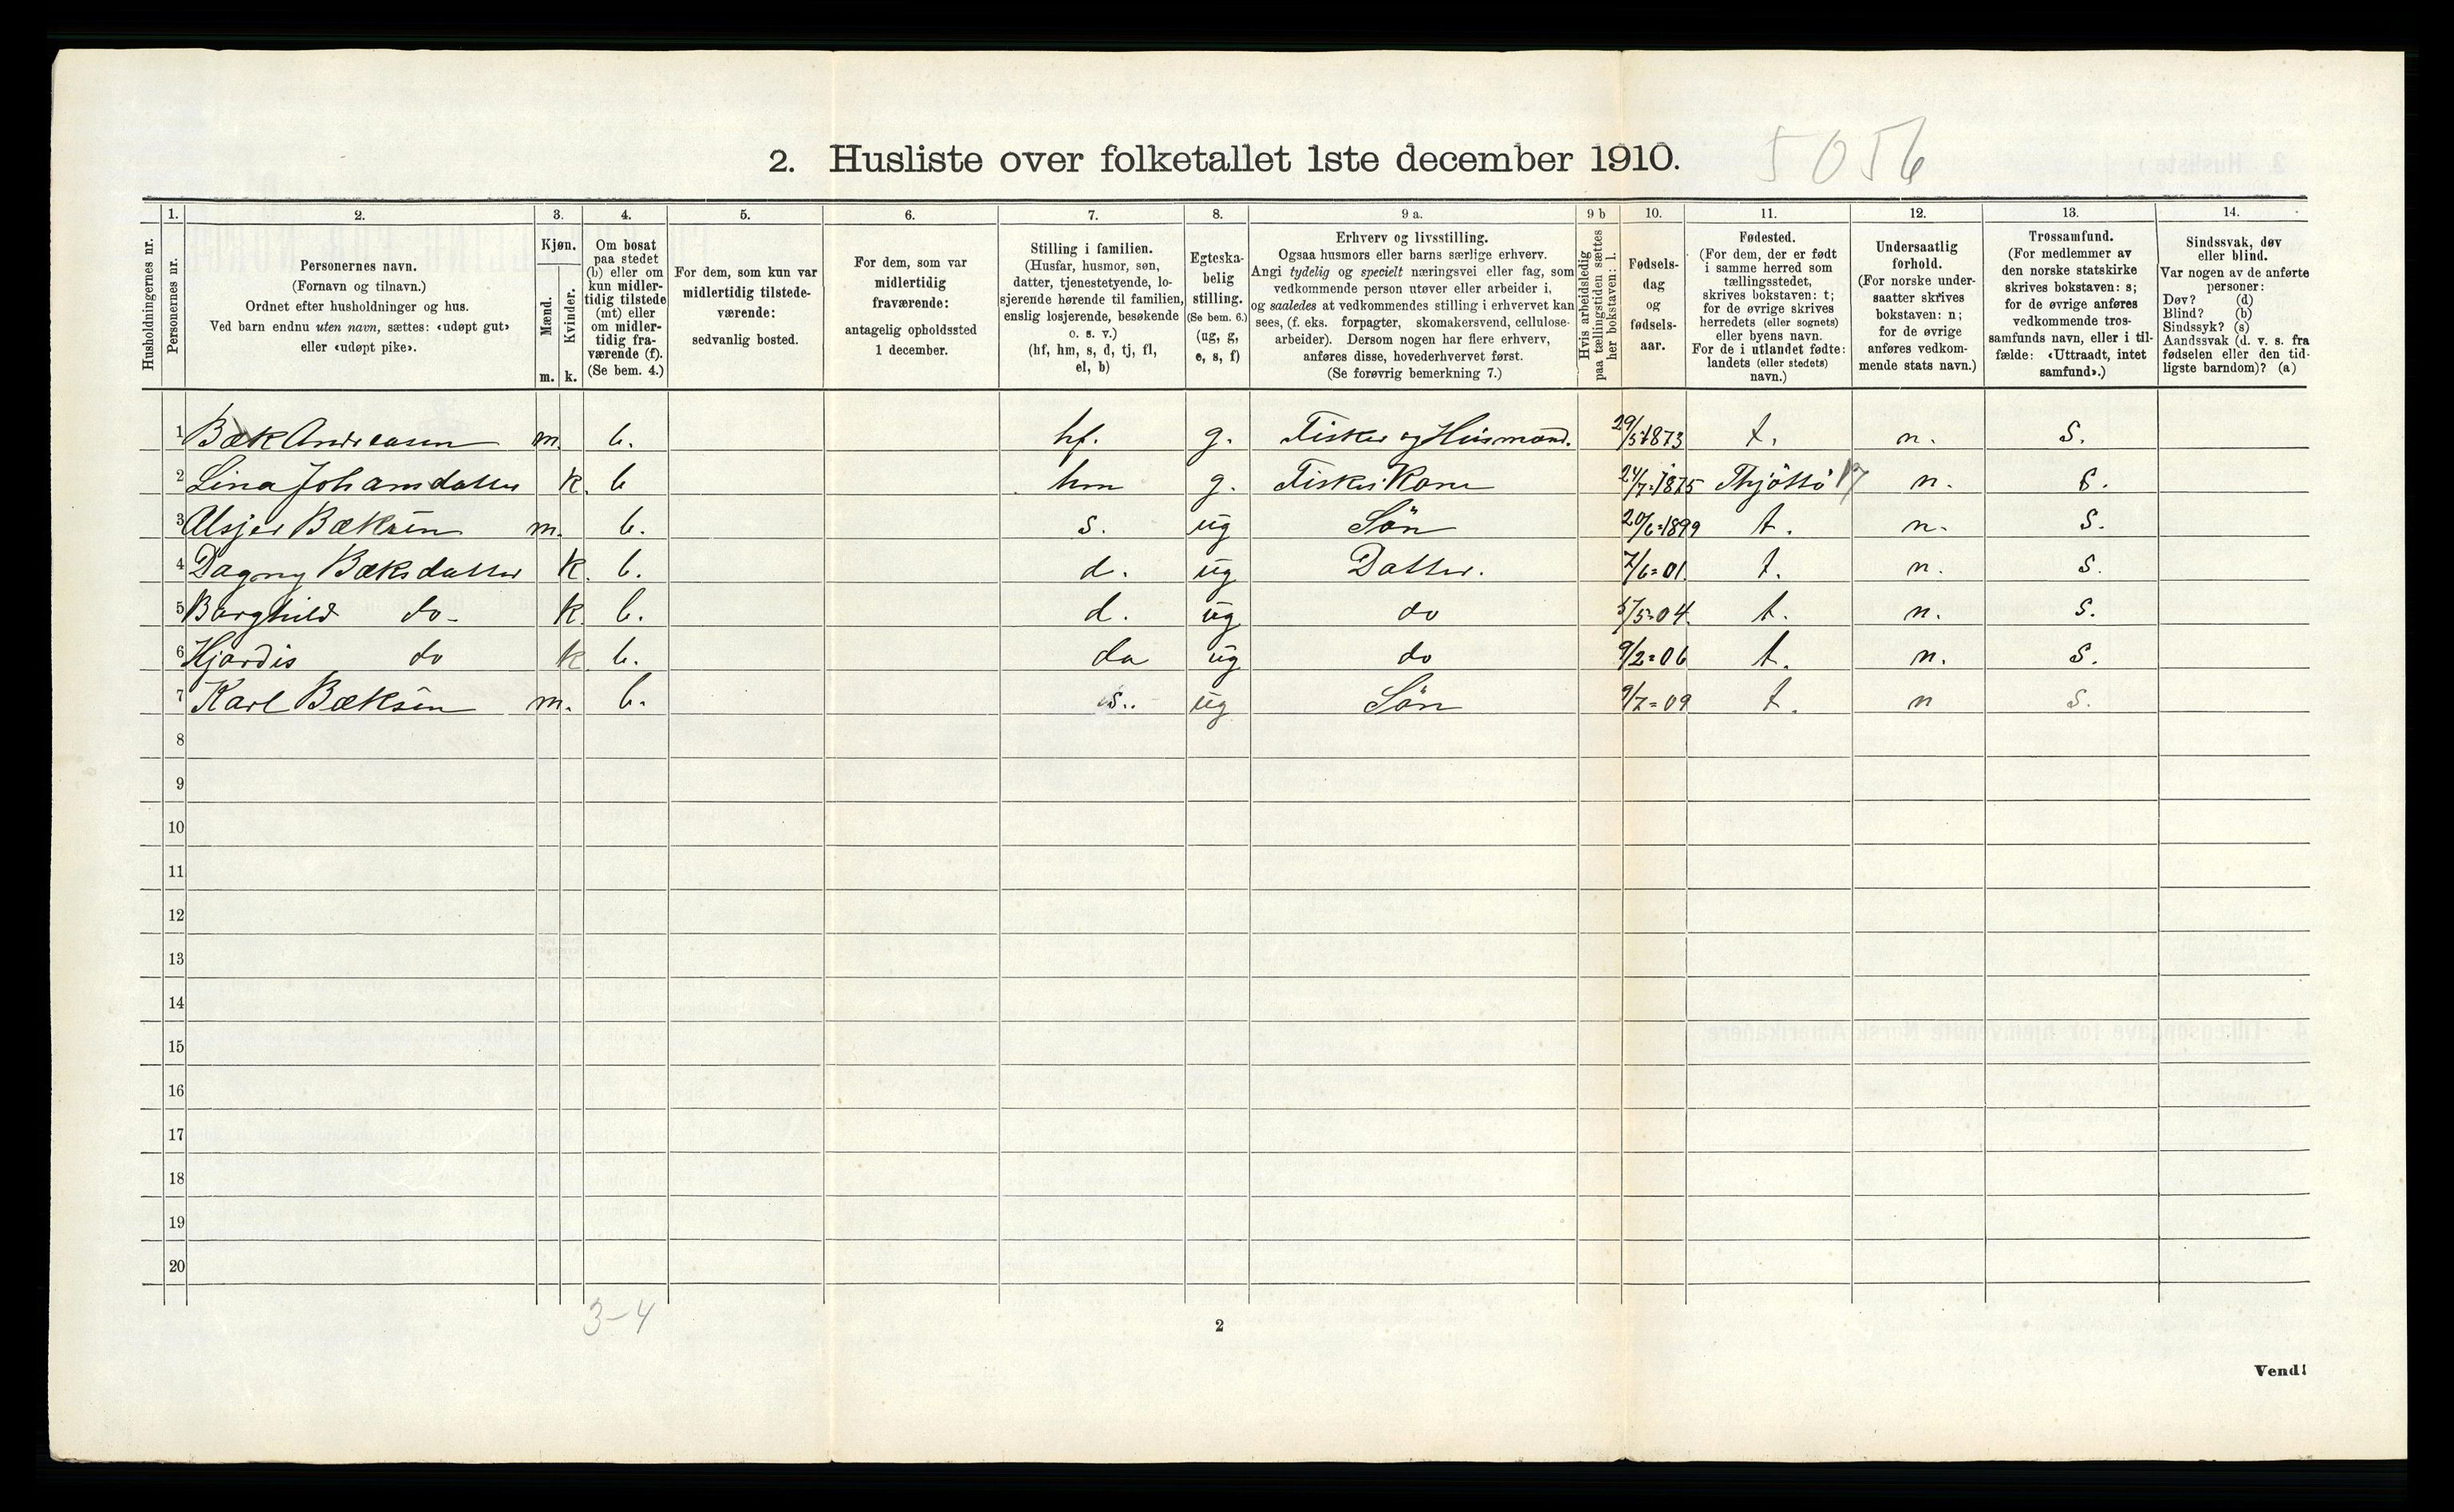 2. Husliste over folketallet 1ste december 1910. 5056
Husholdningernes nr.
1. Personernes nr.
2. Personernes navn. (Fornavn og tilnavn.) Ordnet efter husholdninger og hus. Ved barn endnu uten navn, sættes: «udøpt gut» eller «udøpt pike».
3. Kjøn. Mænd. m. Kvinder. k.
4. Om bosat paa stedet (b) eller om kun midlertidig tilstede (mt) eller om midlertidig fraværende (f). (Se bem. 4.)
5. For dem, som kun var midlertidig tilstedeværende: sedvanlig bosted.
6. For dem, som var midlertidig fraværende: antagelig opholdssted 1 december.
7. Stilling i familien. (Husfar, husmor, søn, datter, tjenestetyende, losjerende hørende til familien, enslig losjerende, besøkende o. s. v.) (hf, hm, s, d, tj, fl, el, b)
8. Egteskabelig stilling. (Se bem. 6.) (ug, g, e, s, f)
9 a. Erhverv og livsstilling. Ogsaa husmors eller barns særlige erhverv. Angi tydelig og specielt næringsvei eller fag, som vedkommende person utøver eller arbeider i, og saaledes at vedkommendes stilling i erhvervet kan sees, (f. eks. forpagter, skomakersvend, cellulosearbeider). Dersom nogen har flere erhverv, anføres disse, hovederhvervet først. (Se forøvrig bemerkning 7.)
9 b Hvis arbeidsledig paa tællingstiden sættes her bokstaven: l.
10. Fødselsdag og fødselsaar.
11. Fødested. (For dem, der er født i samme herred som tællingsstedet, skrives bokstaven: t; for de øvrige skrives herredets (eller sognets) eller byens navn. For de i utlandet fødte: landets (eller stedets) navn.)
12. Undersaatlig forhold. (For norske undersaatter skrives bokstaven: n; for de øvrige anføres vedkommende stats navn.)
13. Trossamfund. (For medlemmer av den norske statskirke skrives bokstaven: s; for de øvrige anføres vedkommende trossamfunds navn, eller i tilfælde: «Uttraadt, intet samfund».)
14. Sindssvak, døv eller blind. Var nogen av de anførte personer: Døv? (d) Blind? (b) Sindssyk? (s) Aandssvak (d. v. s. fra fødselen eller den tidligste barndom)? (a)
1 Bæk Andreasen m. b. hf. g. Fisker og Husmand. 29/5=1873 t. n. s.
2 Lina Johansdatter k. b hm g. Fisker Kone 24/7=1875 Thjøttø 17 n. s.
3 Alsjer Bæksen m. b. s. ug Sön 20/6=1899 t. n. s.
4 Dagny Bæksdatter k. b. d. ug Datter. 7/6=01. t. n. s.
5 Borghild do- k. b. d. ug do 5/5=04. t. n. s.
6 Hjørdis do k. b. da ug do 9/2=06 t. n. s.
7 Karl Bæksen m. b. s. ug Sön 9/7=09 t. n s.
8
9
10
11
12
13
14
15
16
17
18
19
20
3-4
2
Vend!